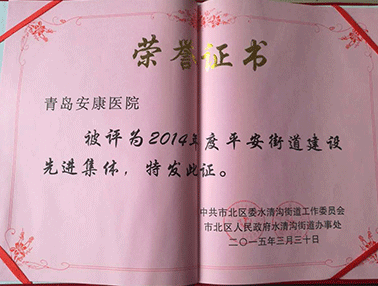 荣誉证书
青岛安康医院
被评为2014年度平安街道建设
先进集体，特发此证。
中共市北区委水清沟街道工作委员会
市北区人民政府水清沟街道办事处
二〇一五年三月三十日